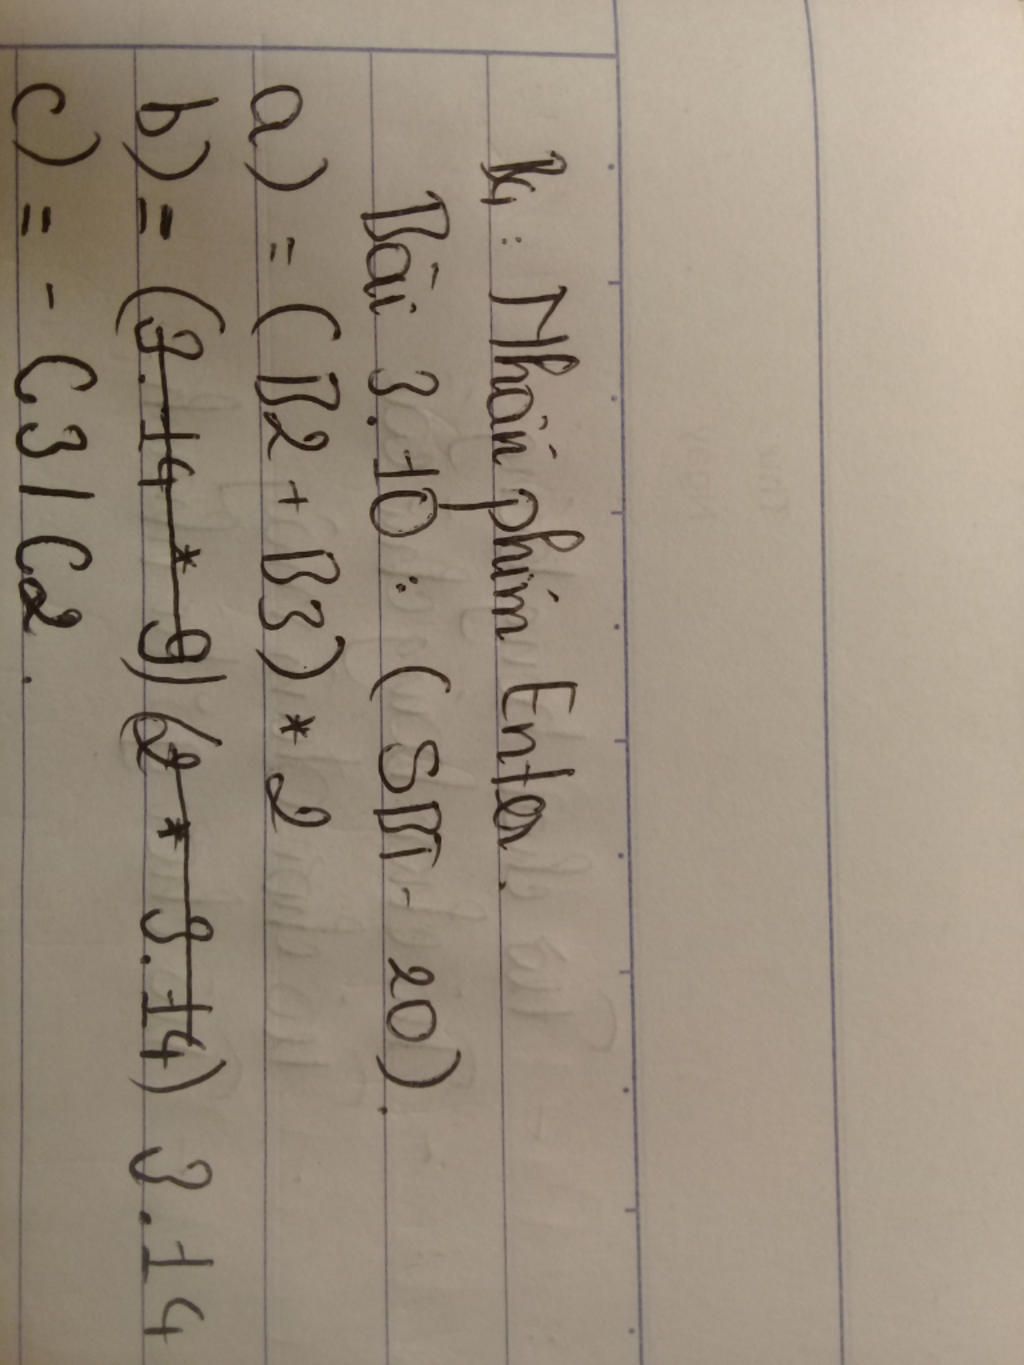 B4: Nhấn phím Enter.
Bài 3.10: (SBT-20).
a) = (B2 + B3) * 2
b) = (3.14 * 9) (2 * 3.14) 3.14
c) = - C3 / C2.